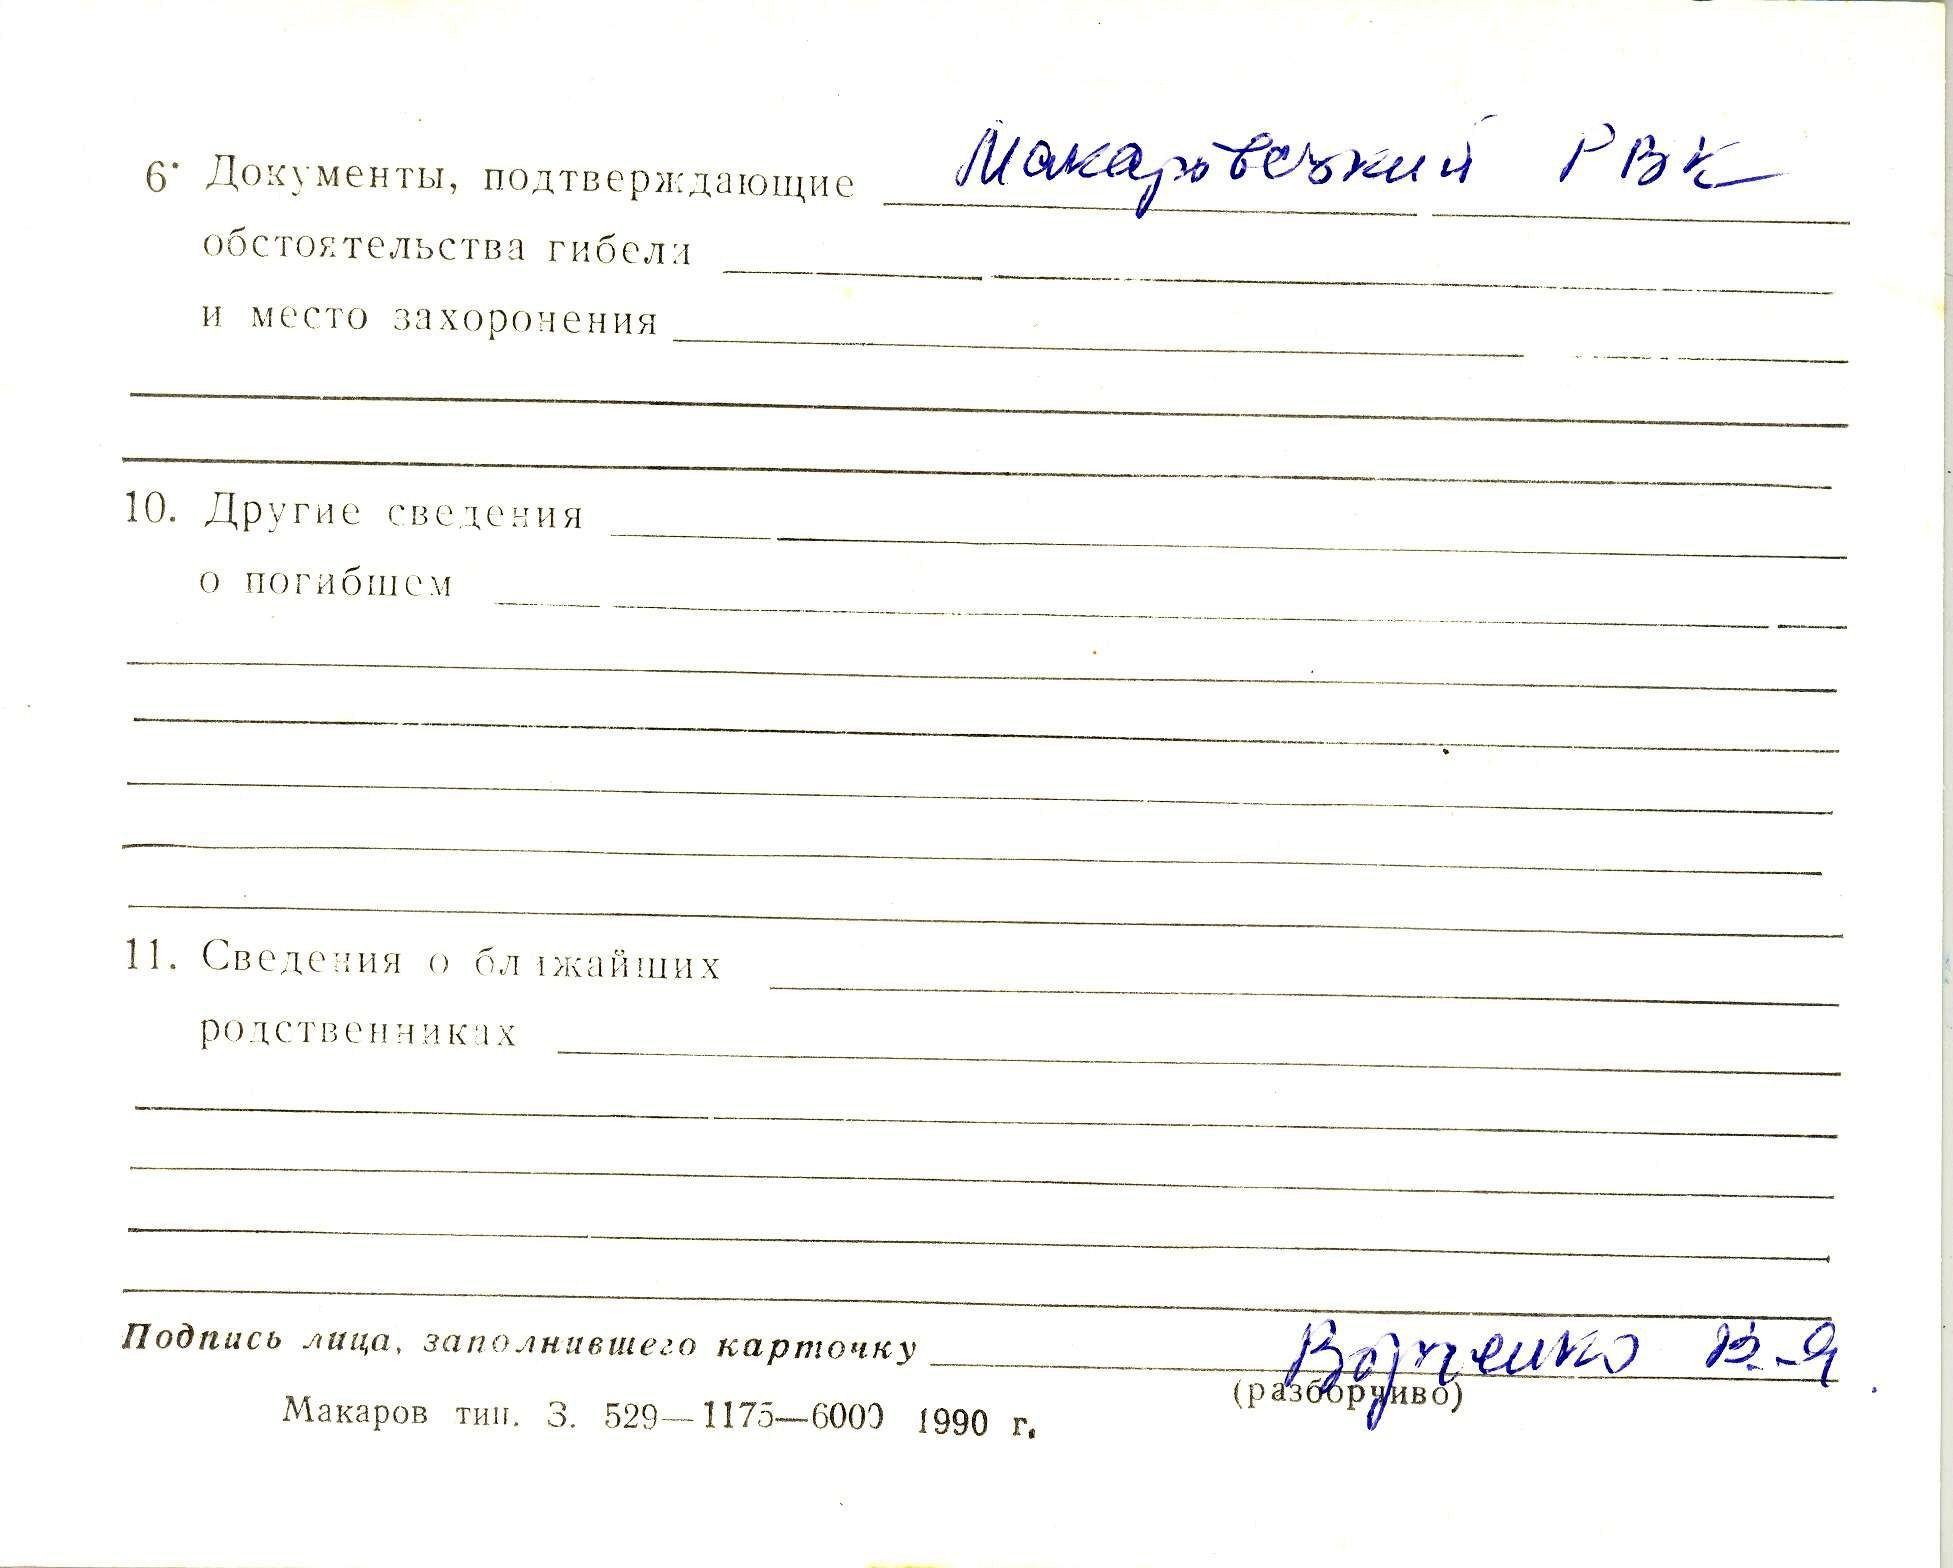 6. Документы, подтверждающие Макаровский РВК
обстоятельства гибели
и место захоронения
10. Другие сведения
о погибшем
11. Сведения о ближайших
родственниках
Подпись лица, заполнившего карточку В.Я.
(разборчиво)
Макаров тип. З. 529—1175—6000 1990 г.